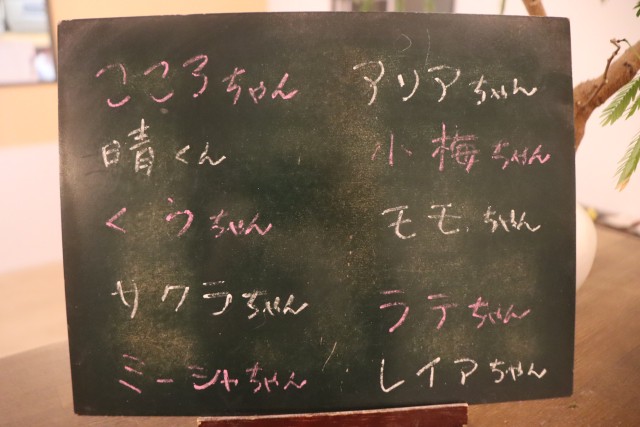 こころちゃん
晴くん
くうちゃん
サクラちゃん
ミーシャちゃん
アリアちゃん
小梅ちゃん
モモちゃん
ラテちゃん
レイアちゃん